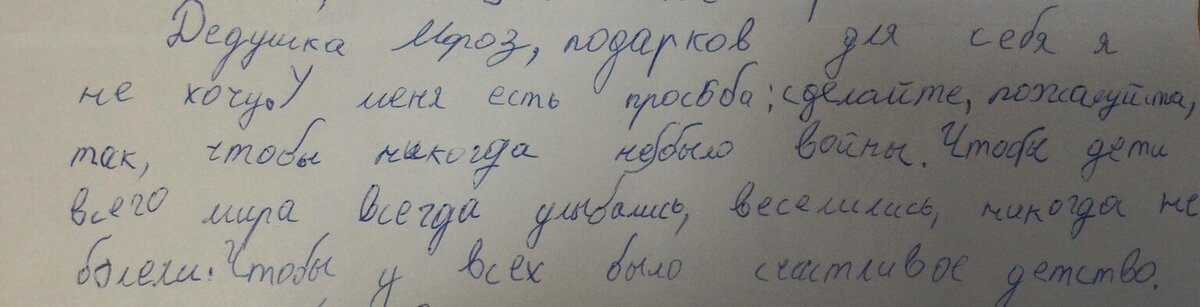 Дедушка Мороз, подарков для себя я
не хочу. У меня есть просьба: сделайте, пожалуйста,
так, чтобы никогда небыло войны. Чтобы дети
всего мира всегда улыбались, веселились, никогда не
болели. Чтобы у всех было счастливое детство.